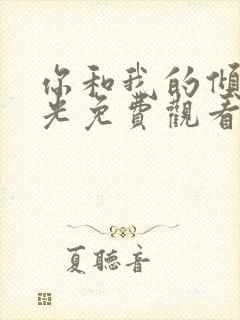 你和我的傾
光免費觀看
夏聽音